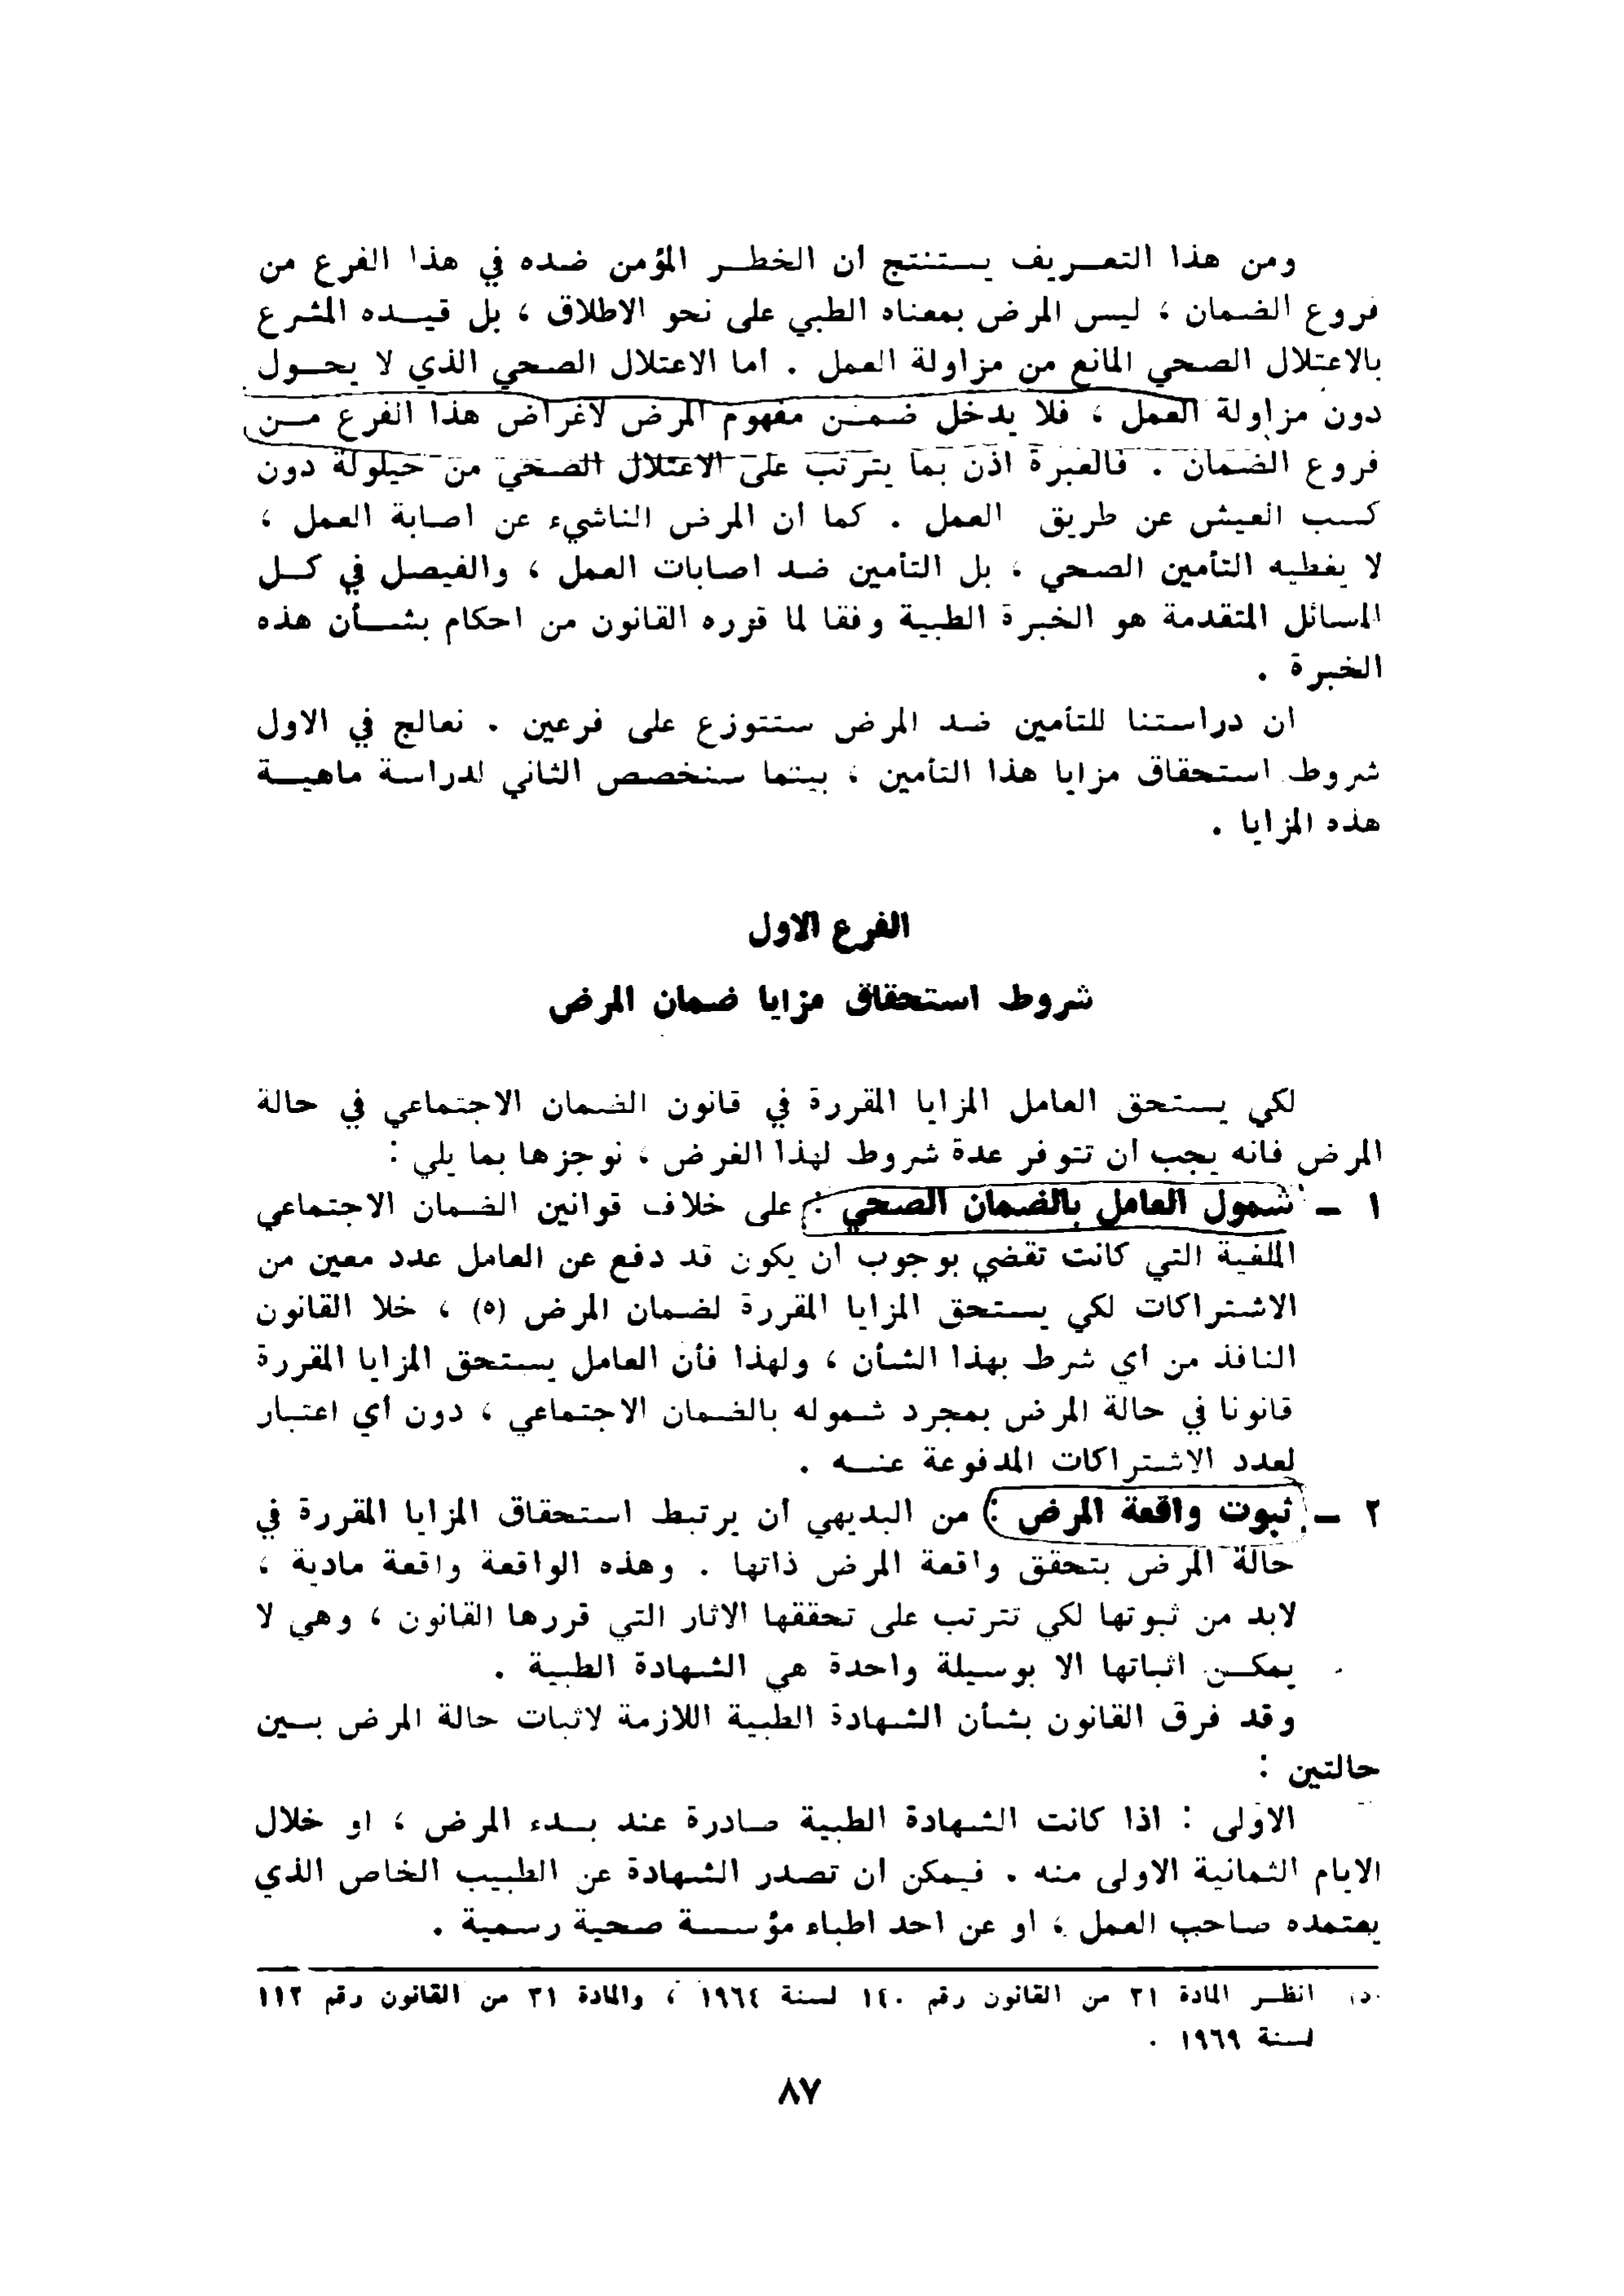 ومن هذا التعريف يستنتج ان الخطر المؤمن ضده في هذا الفرع من
فروع الضمان ، ليس المرض بمعناه الطبي على نحو الاطلاق ، بل قيده المشرع
بالاعتلال الصحي المانع من مزاولة العمل . اما الاعتلال الصحي الذي لا يحول
دون مزاولة العمل ، فلا يدخل ضمن مفهوم المرض لاغراض هذا الفرع من
فروع الضمان . فالعبرة اذن بما يترتب على الاعتلال الصحي من حيلولة دون
كسب العيش عن طريق العمل . كما ان المرض الناشيء عن اصابة العمل ،
لا يغطيه التأمين الصحي ، بل التأمين ضد اصابات العمل ، والفيصل في كل
المسائل المتقدمة هو الخبرة الطبية وفقا لما قرره القانون من احكام بشأن هذه
الخبرة .
ان دراستنا للتأمين ضد المرض ستتوزع على فرعين . نعالج في الاول
شروط استحقاق مزايا هذا التأمين ، بينما سنخصص الثاني لدراسة ماهية
هذه المزايا .
الفرع الاول
شروط استحقاق مزايا ضمان المرض
لكي يستحق العامل المزايا المقررة في قانون الضمان الاجتماعي في حالة
المرض فانه يجب ان تتوفر عدة شروط لهذا الغرض ، نوجزها بما يلي :
١ – شمول العامل بالضمان الصحي : على خلاف قوانين الضمان الاجتماعي
الملغية التي كانت تقضي بوجوب ان يكون قد دفع عن العامل عدد معين من
الاشتراكات لكي يستحق المزايا المقررة لضمان المرض (٥) ، خلا القانون
النافذ من اي شرط بهذا الشأن ، ولهذا فأن العامل يستحق المزايا المقررة
قانونا في حالة المرض بمجرد شموله بالضمان الاجتماعي ، دون أي اعتبار
لعدد الاشتراكات المدفوعة عنه .
٢ – ثبوت واقعة المرض : من البديهي ان يرتبط استحقاق المزايا المقررة في
حالة المرض بتحقق واقعة المرض ذاتها . وهذه الواقعة واقعة مادية ،
لابد من ثبوتها لكي تترتب على تحققها الاثار التي قررها القانون ، وهي لا
يمكن اثباتها الا بوسيلة واحدة هي الشهادة الطبية .
وقد فرق القانون بشأن الشهادة الطبية اللازمة لاثبات حالة المرض بين
حالتين :
الاولى : اذا كانت الشهادة الطبية صادرة عند بدء المرض ، او خلال
الايام الثمانية الاولى منه . فيمكن ان تصدر الشهادة عن الطبيب الخاص الذي
يعتمده صاحب العمل ، او عن احد اطباء مؤسسة صحية رسمية .
(٥) انظر المادة ٢١ من القانون رقم ١٤٠ لسنة ١٩٦٤ ، والمادة ٣١ من القانون رقم ١١٢
لسنة ١٩٦٩ .
٨٧